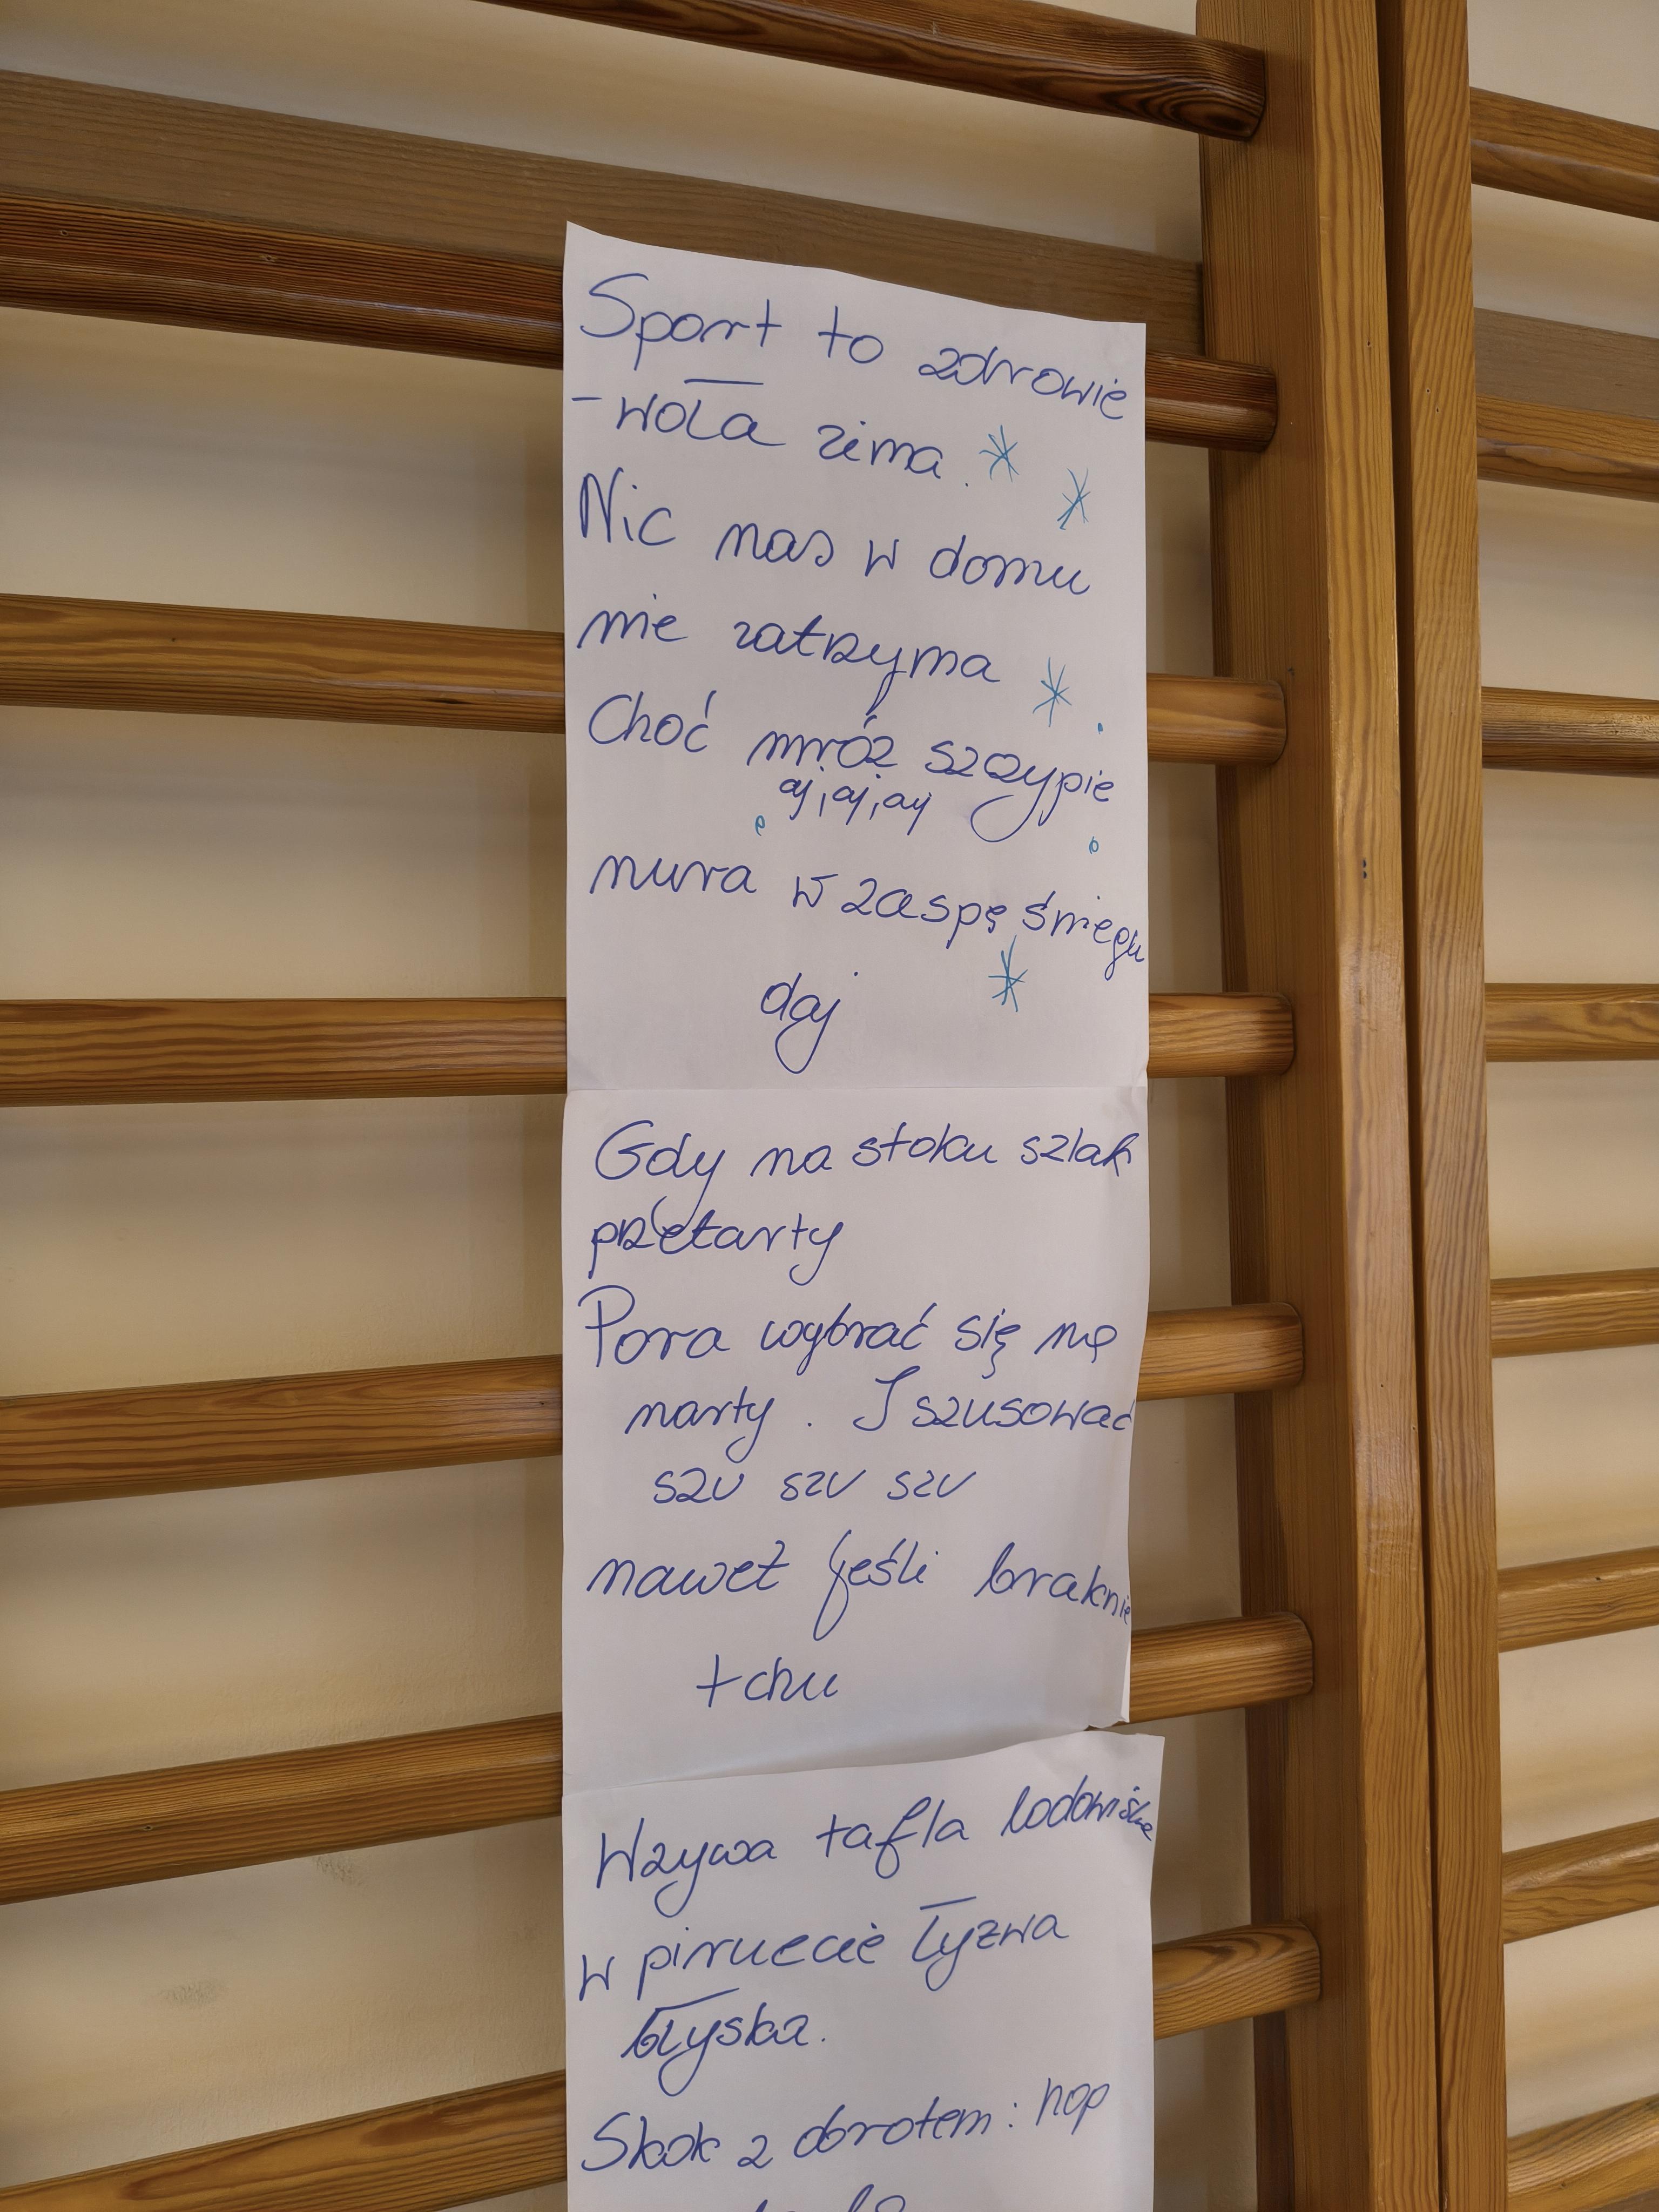 Sport to zdrowie
- woła zima.
Nic nas w domu
nie zatrzyma
Choć mróz szczypie
aj, aj, aj
nura w zaspę śniegu
daj
Gdy na stoku szlak
przetarty
Pora wybrać się na
narty. I szusować
szu szu szu
nawet jeśli braknie
tchu
Wzywa tafla lodowiska
w piruecie łyżwa
błyska.
Skok z obrotem: hop